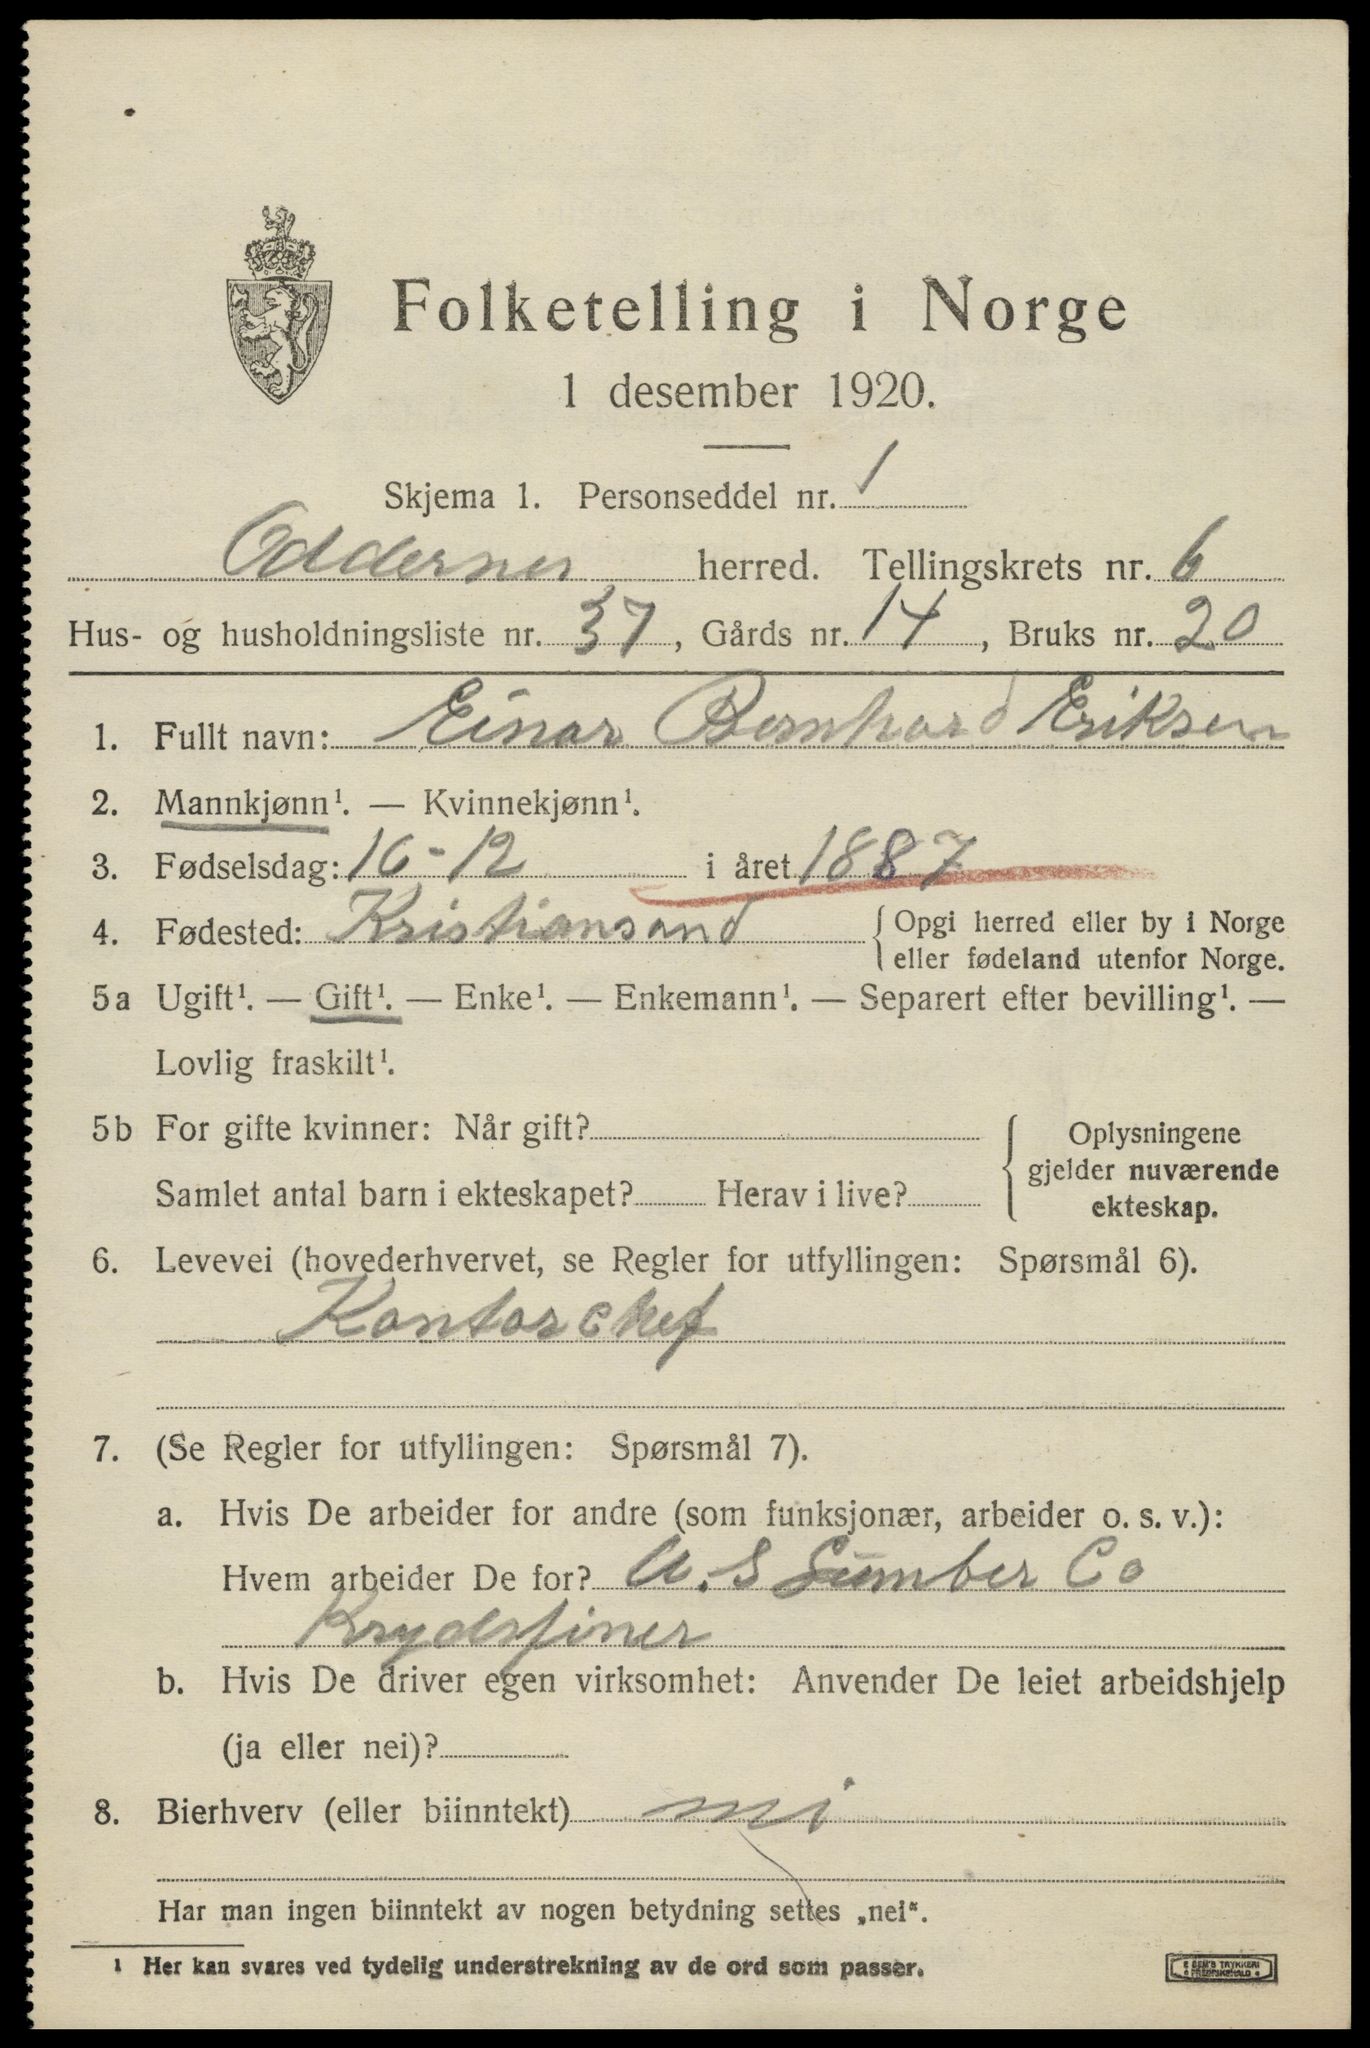 Folketelling i Norge
1 desember 1920.
Skjema 1. Personseddel nr. 1
Oddernes herred. Tellingskrets nr. 6
Hus- og husholdningsliste nr. 37, Gårds nr. 14, Bruks nr. 20
1. Fullt navn: Einar Bernhard Eriksen
2. Mannkjønn¹. — Kvinnekjønn¹.
3. Fødselsdag: 16-12 i året 1887
4. Fødested: Kristiansand { Opgi herred eller by i Norge
eller fødeland utenfor Norge.
5a Ugift¹. — Gift¹. — Enke¹. — Enkemann¹. — Separert efter bevilling¹. —
Lovlig fraskilt¹.
5b For gifte kvinner: Når gift? { Oplysningene
gjelder nuværende
ekteskap.
Samlet antal barn i ekteskapet? Herav i live?
6. Levevei (hovederhvervet, se Regler for utfyllingen: Spørsmål 6).
Kontorchef
7. (Se Regler for utfyllingen: Spørsmål 7).
a. Hvis De arbeider for andre (som funksjonær, arbeider o. s. v.):
Hvem arbeider De for? A.S Lumber Co
Krydsfiner
b. Hvis De driver egen virksomhet: Anvender De leiet arbeidshjelp
(ja eller nei)?
8. Bierhverv (eller biinntekt) nei
Har man ingen biinntekt av nogen betydning settes „nei“.
¹ Her kan svares ved tydelig understrekning av de ord som passer.
E SEM'S TRYKKERI
FREDRIKSHALD